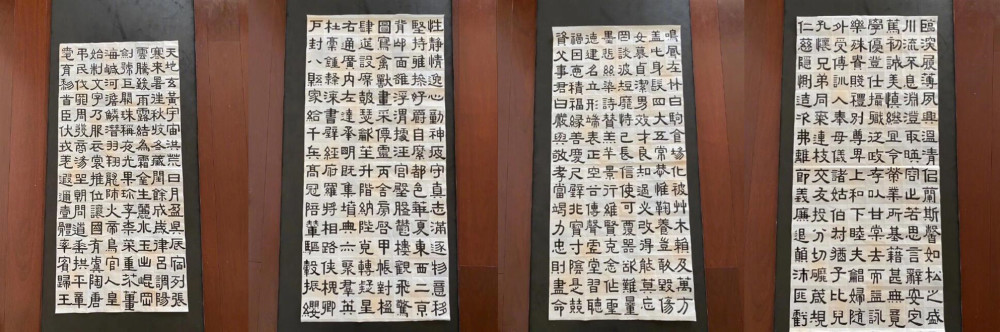 天地玄黃宇宙洪荒日月盈昃辰宿列張
寒來暑往秋收冬藏閏餘成歲律呂調陽
雲騰致雨露結為霜金生麗水玉出崐岡
劍號巨闕珠稱夜光果珍李柰菜重芥薑
海鹹河淡鱗潛羽翔龍師火帝鳥官人皇
始制文字乃服衣裳推位讓國有虞陶唐
弔民伐罪周發殷湯坐朝問道垂拱平章
愛育黎首臣伏戎羌遐邇壹體率賓歸王
性靜情逸心動神疲守真志滿逐物意移
堅持雅操好爵自縻都邑華夏東西二京
背邙面洛浮渭據涇宮殿盤鬱樓觀飛驚
圖寫禽獸畫采仙靈丙舍傍啟甲帳對楹
肆筵設席鼓瑟吹笙升階納陛弁轉疑星
右通廣內左達承明既集墳典亦聚群英
杜稾鍾隸漆書壁經府羅將相路俠槐卿
戶封八縣家給千兵高冠陪輦驅轂振纓
鳴鳳在竹白駒食場化被艸木賴及萬方
蓋此身髮四大五常恭惟鞠養豈敢毀傷
女慕貞潔男效才良知過必改得能莫忘
罔談彼短靡恃己長信使可覆器欲難量
墨悲絲染詩讚羔羊景行維賢克念作聖
德建名立形端表正空谷傳聲虛堂習聽
禍因惡積福緣善慶尺璧非寶寸陰是競
資父事君曰嚴與敬孝當竭力忠則盡命
臨深履薄夙興溫凊似蘭斯馨如松之盛
川流不息淵澄取暎容止若思言辭安定
篤初誠美慎終宜令榮業所基籍甚無竟
學優登仕攝職從政存以甘棠去而益詠
樂殊貴賤禮別尊卑上和下睦夫唱婦隨
外受傅訓入奉母儀諸姑伯叔猶子比兒
孔懷兄弟同氣連枝交友投分切磨箴規
仁慈隱惻造次弗離節義廉退顛沛匪虧